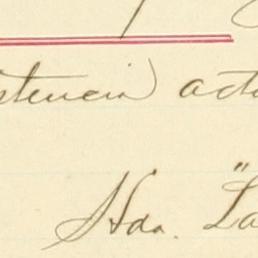 stencia) actu
Hda. "La